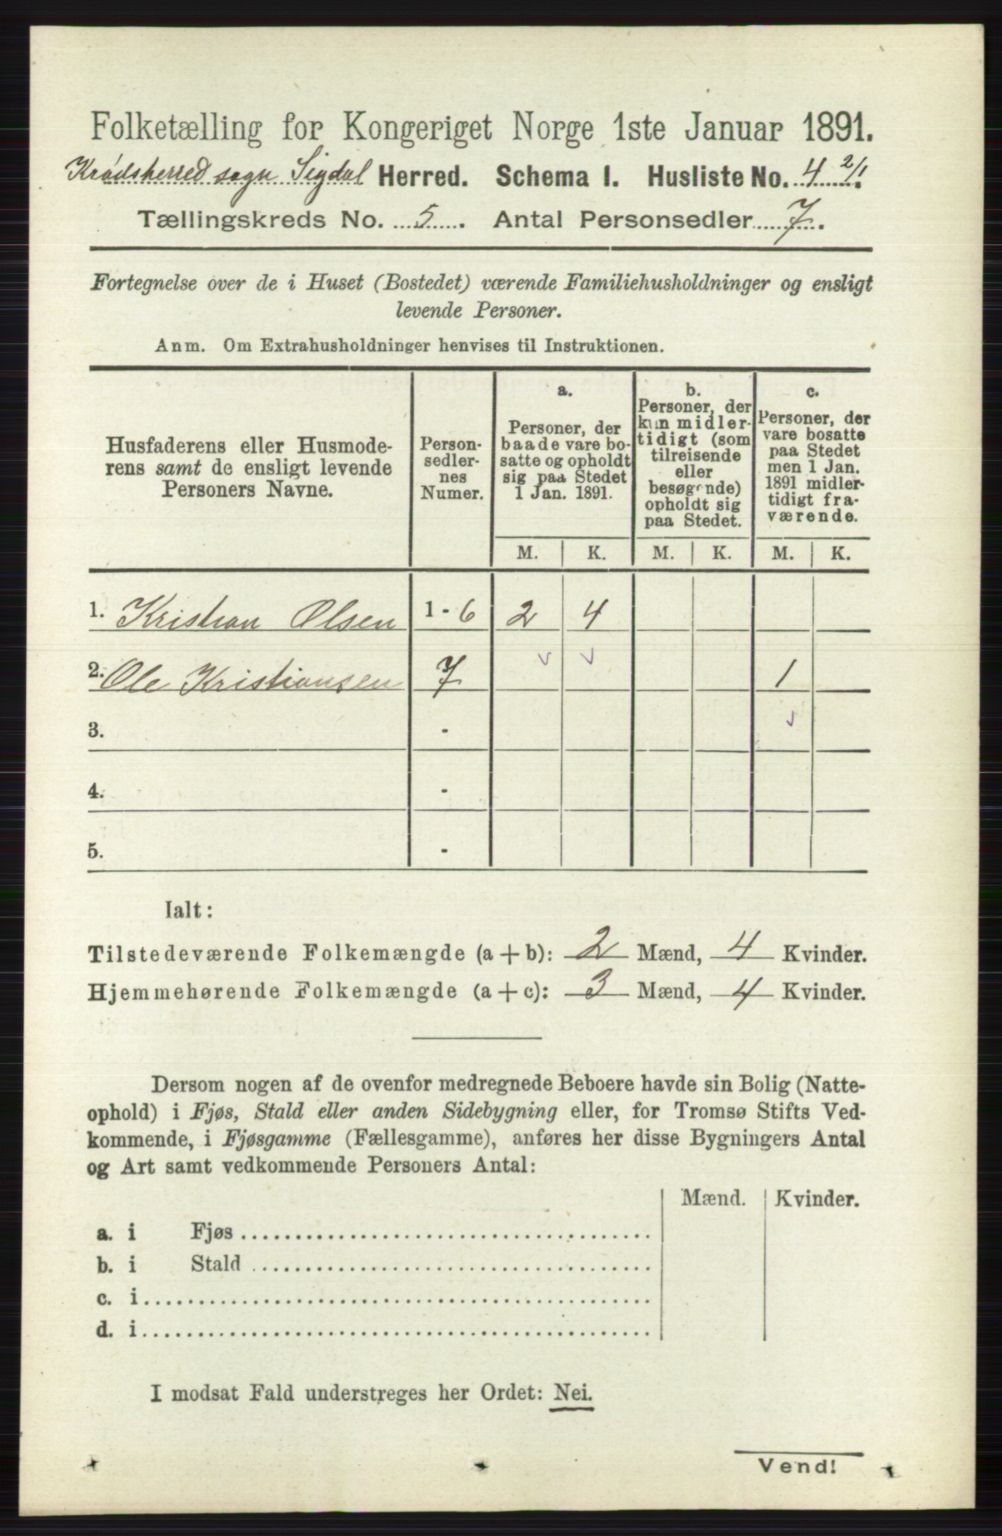 Folketælling for Kongeriget Norge 1ste Januar 1891.
Krødsherred sogn Sigdal Herred. Schema I. Husliste No. 4 2/1.
Tællingskreds No. 5. Antal Personsedler 7.
Fortegnelse over de i Huset (Bostedet) værende Familiehusholdninger og ensligt
levende Personer.
Anm. Om Extrahusholdninger henvises til Instruktionen.
Husfaderens eller Husmode-
rens samt de ensligt levende
Personers Navne.
Person-
sedler-
nes
Numer.
a.
Personer, der
baade vare bo-
satte og opholdt
sig paa Stedet
1 Jan. 1891.
b.
Personer, der
kun midler-
tidigt (som
tilreisende
eller
besøgende)
opholdt sig
paa Stedet.
c.
Personer, der
vare bosatte
paa Stedet
men 1 Jan.
1891 midler-
tidigt fra-
værende.
M. K. M. K. M. K.
1. Kristian Olsen 1 - 6 2 4
2. Ole Kristiansen 7 1
3. -
4. -
5. -
Ialt:
Tilstedeværende Folkemængde (a + b): 2 Mænd, 4 Kvinder.
Hjemmehørende Folkemængde (a + c): 3 Mænd, 4 Kvinder.
Dersom nogen af de ovenfor medregnede Beboere havde sin Bolig (Natte-
ophold) i Fjøs, Stald eller anden Sidebygning eller, for Tromsø Stifts Ved-
kommende, i Fjøsgamme (Fællesgamme), anføres her disse Bygningers Antal
og Art samt vedkommende Personers Antal:
Mænd. Kvinder.
a. i Fjøs
b. i Stald
c. i
d. i
I modsat Fald understreges her Ordet: Nei.
Vend!